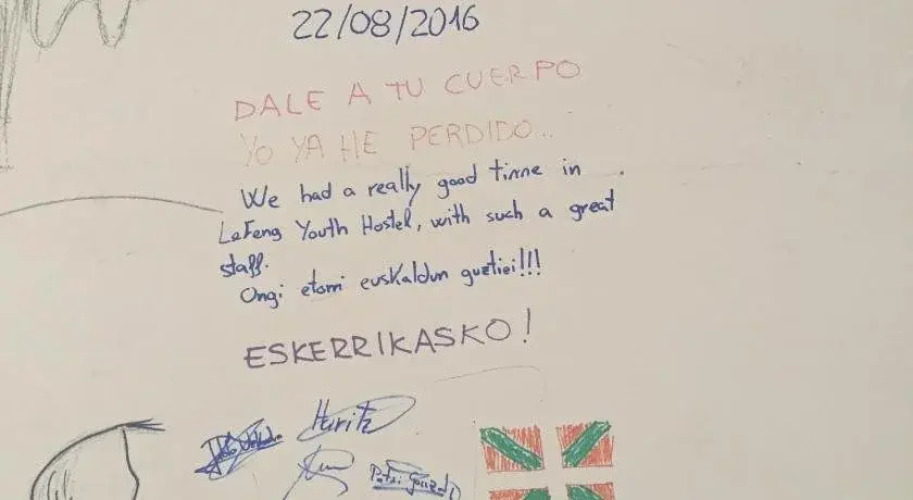 22/08/2016
DALE A TU CUERPO
YO YA HE PERDIDO...
We had a really good time in
LeFeng Youth Hostel, with such a great
staff.
Ongi etorri euskaldun guztiei!!!
ESKERRIKASKO!
Haritz
Patxi